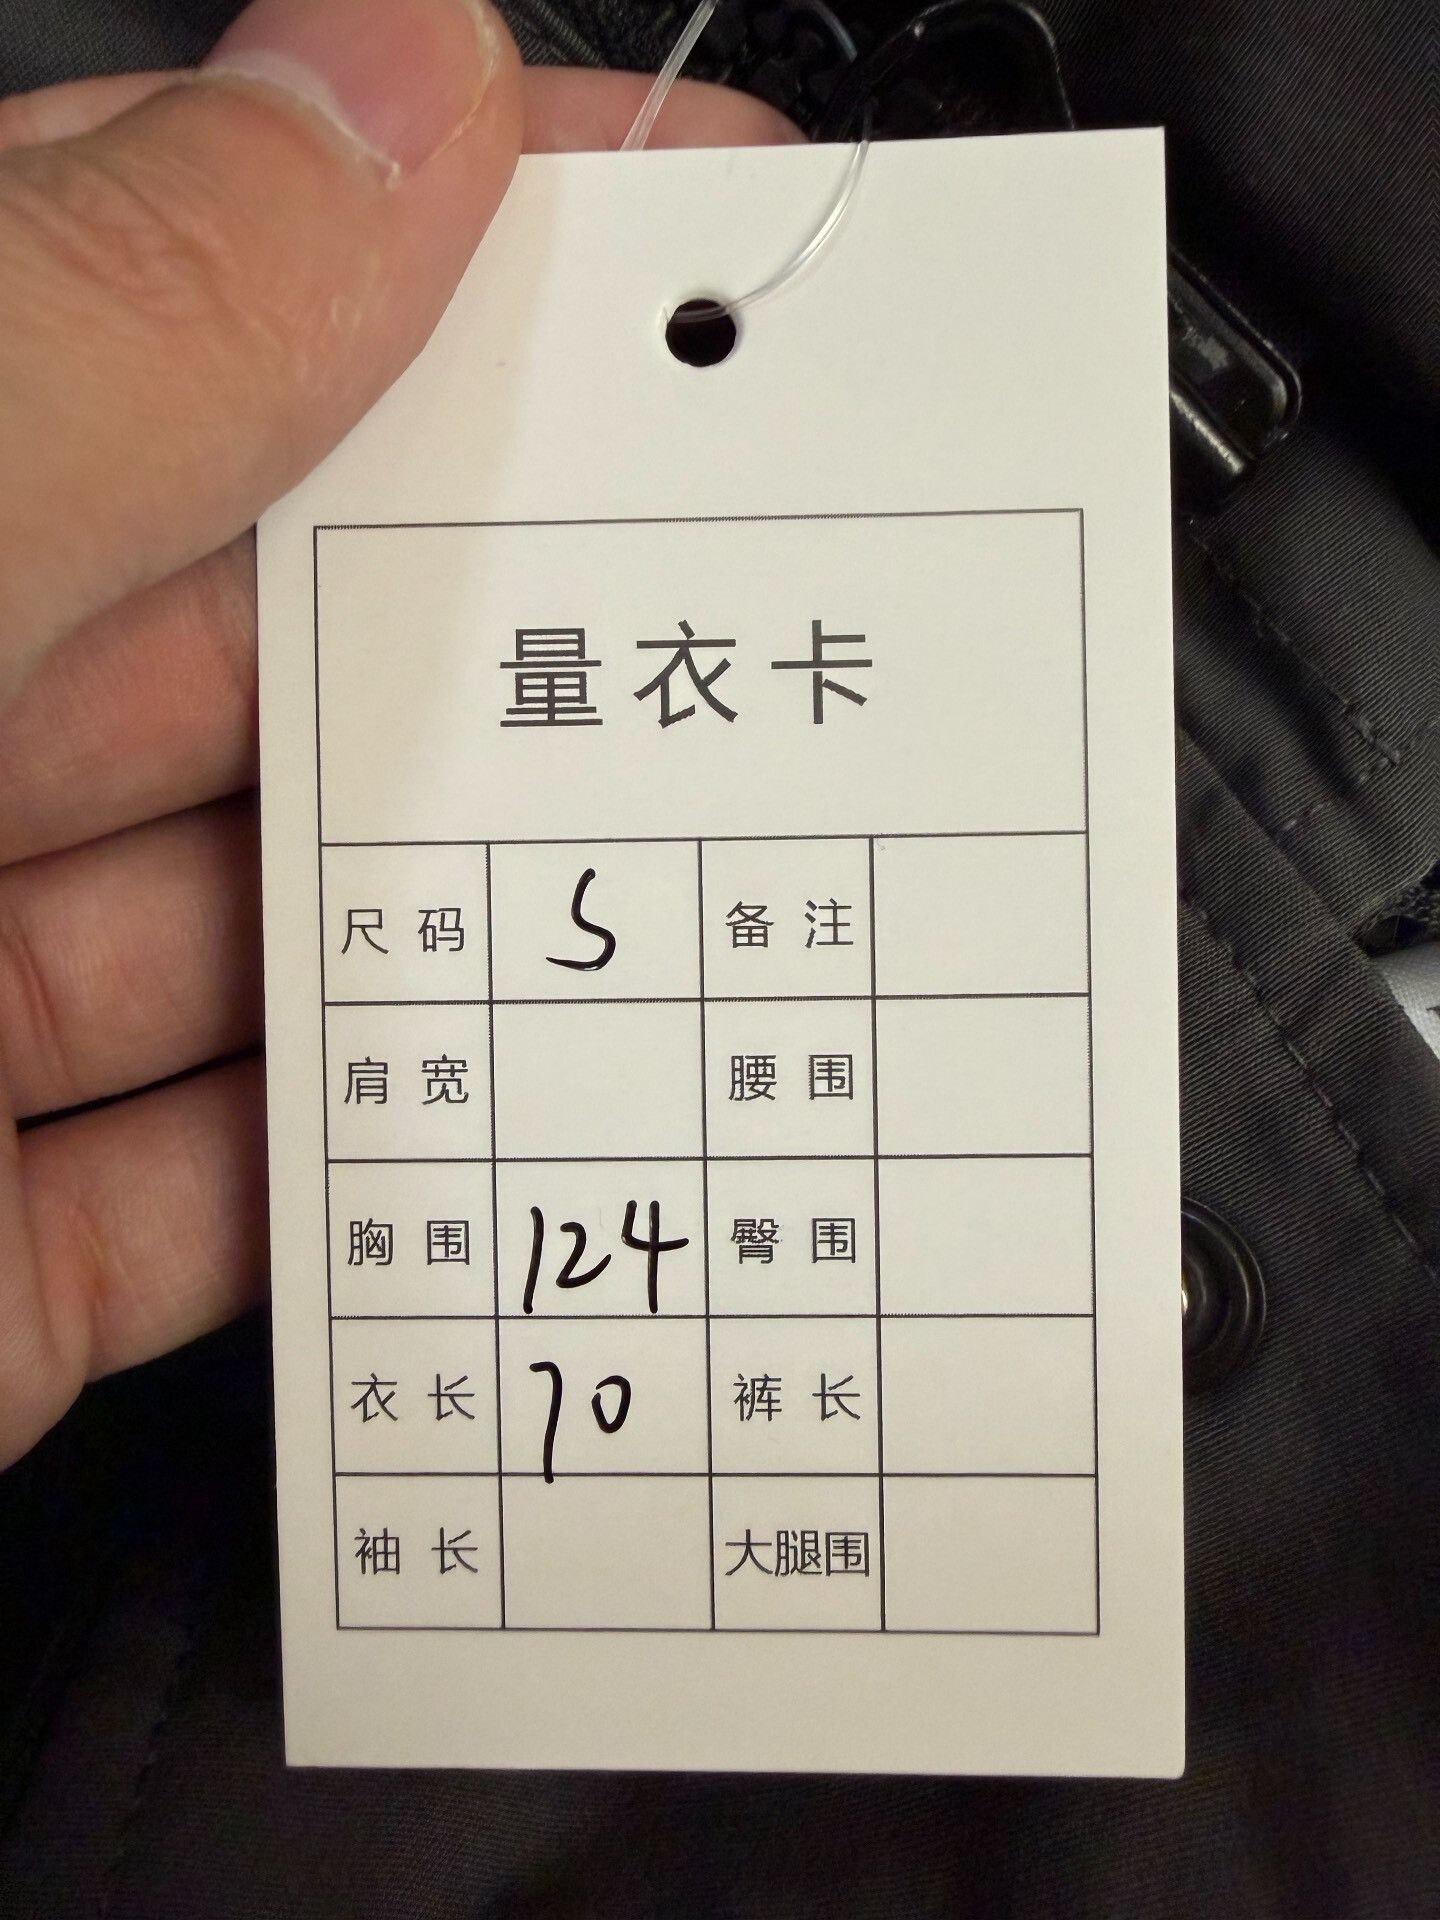 量衣卡
尺码 S 备注
肩宽 腰围
胸围 124 臀围
衣长 70 裤长
袖长 大腿围